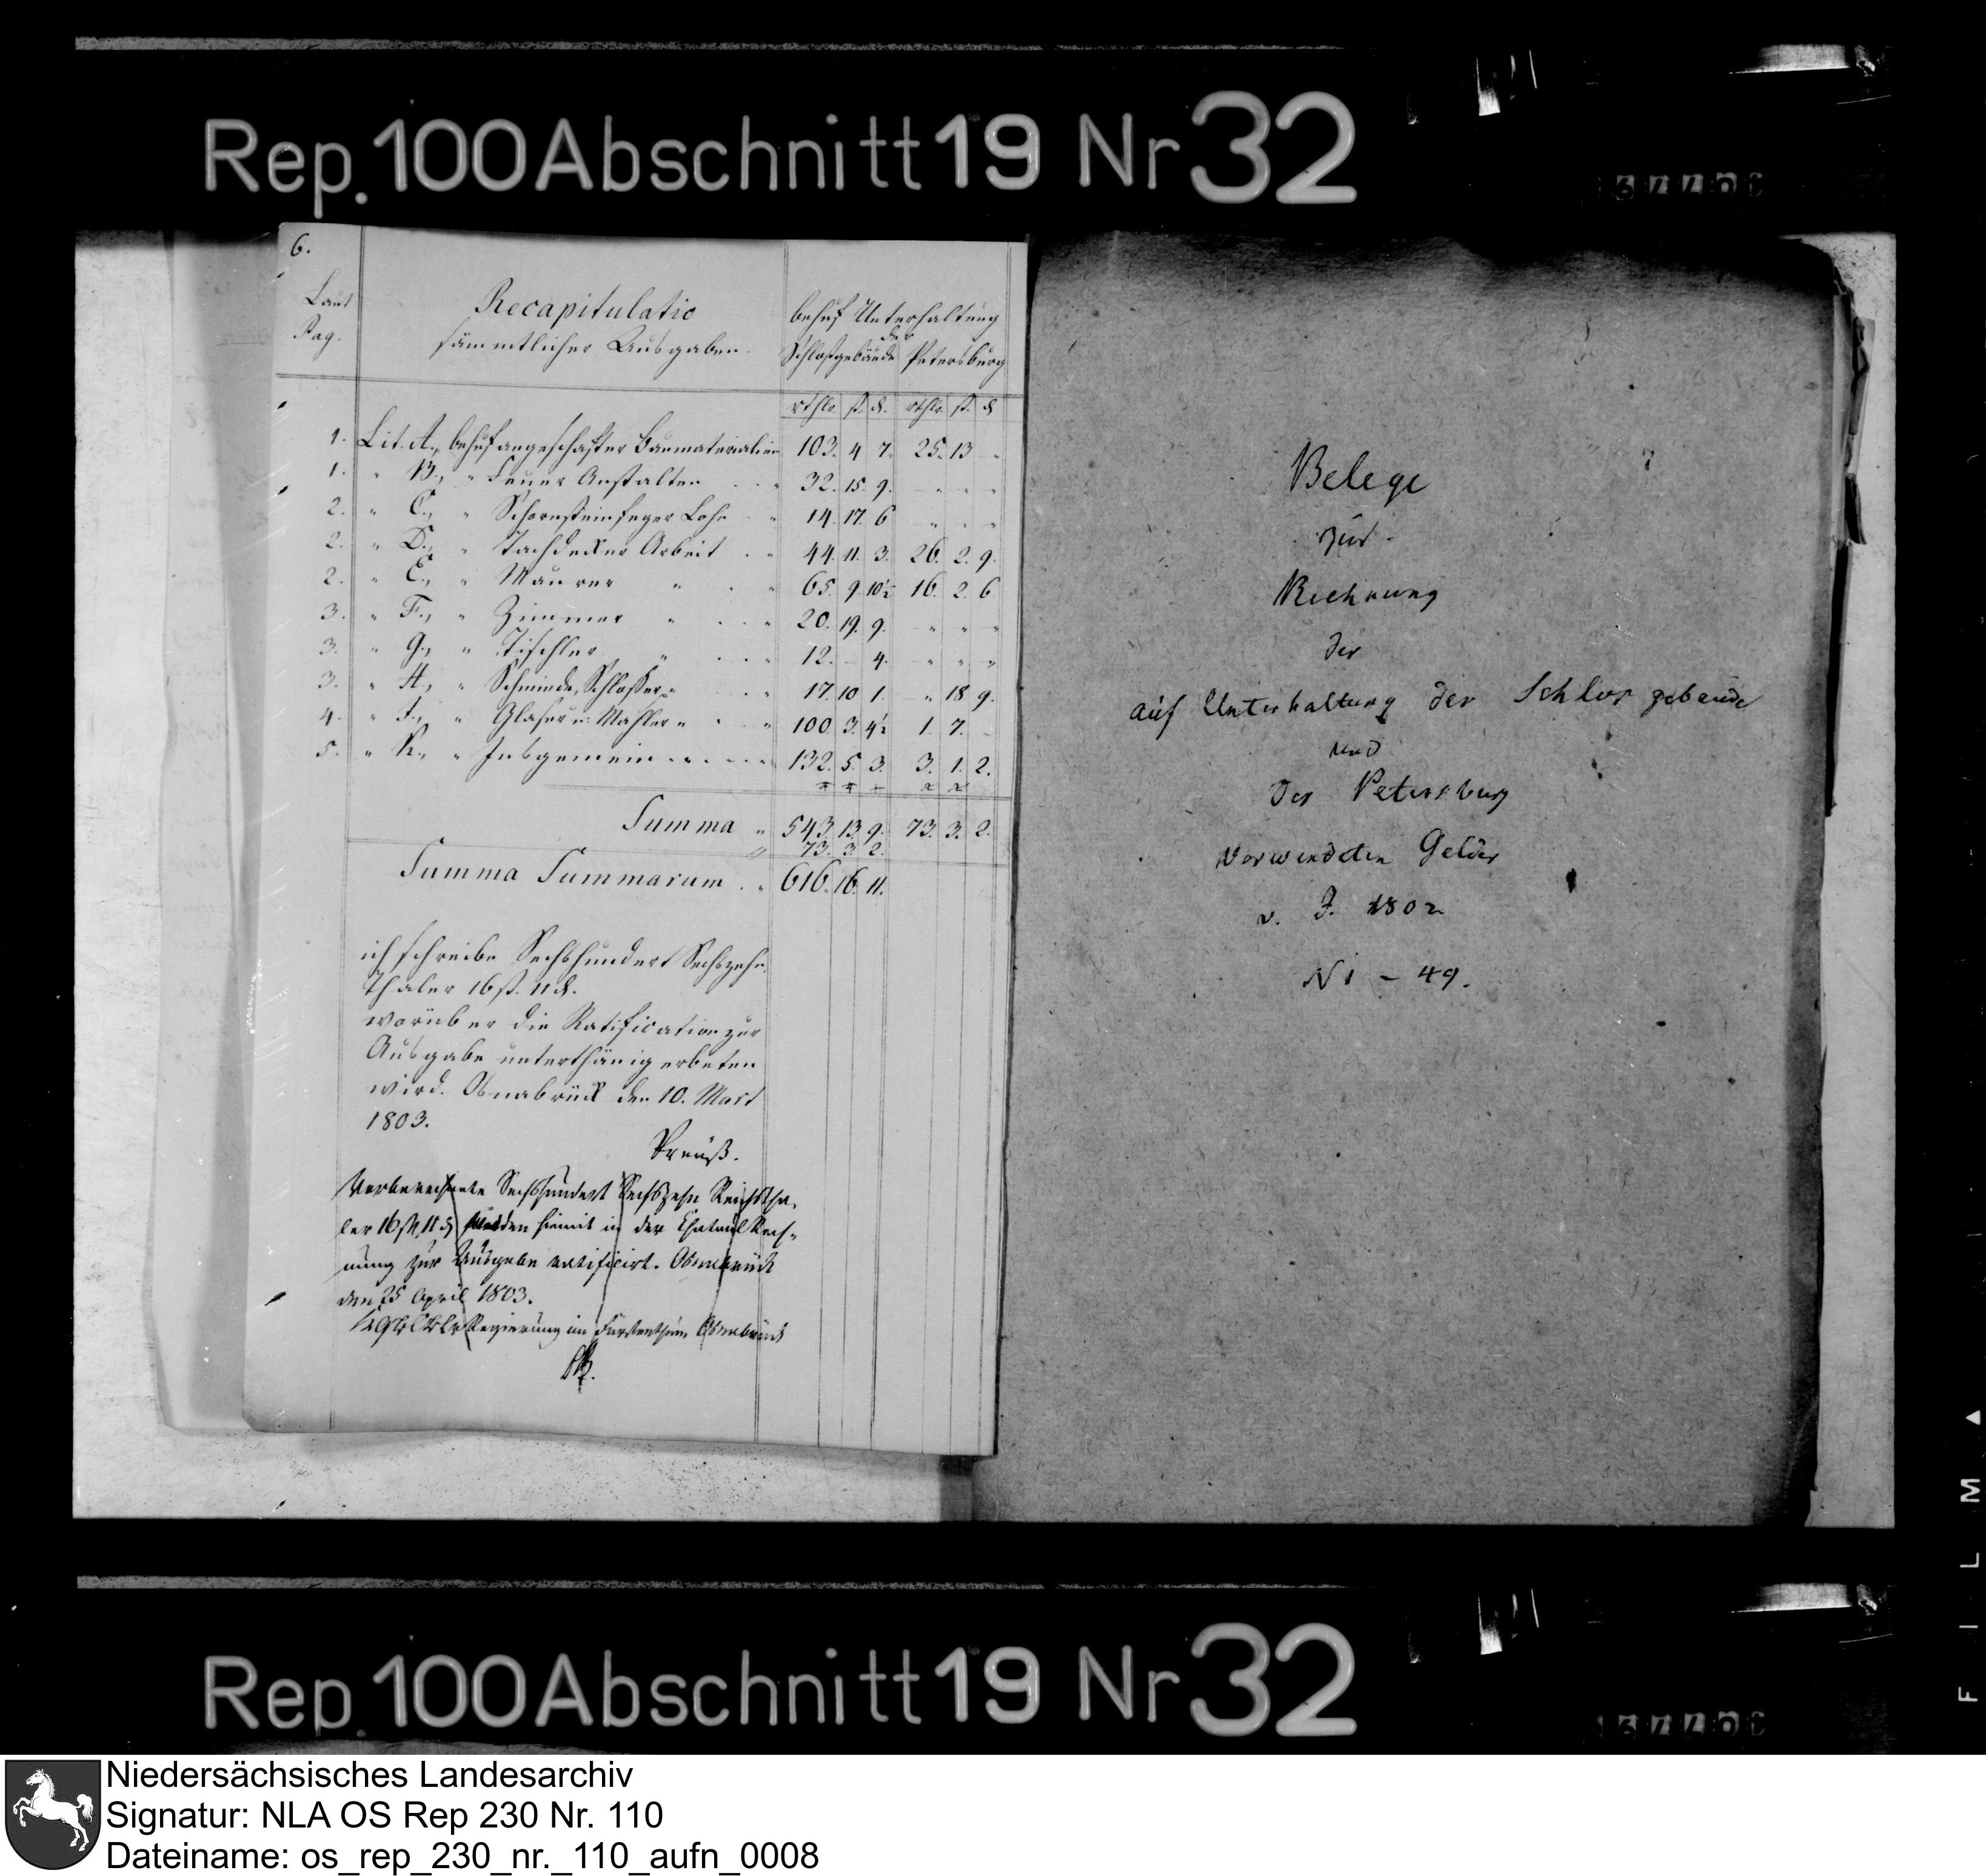 Rep. 100 Abschnitt 19 Nr 32
6.
Laut
Pag.
Recapitulatio
sämmtlicher Ausgaben.
behuf Unterhaltung
der
Schloßgebäude Petersburg
rthlr. ß. d. rthlr. ß. d
1. Lit. A., behuf angeschafter Baumaterialien 103. 4 7. 25. 13 "
1. " B., " Feuer Anstalten " 32. 15. 9. " " "
2. " C., " Schornsteinfeger Lohn " 14. 17. 6 " " "
2. " D., " Dachdecker Arbeit " 44. 11. 3. 26. 2. 9.
2. " E., " Maurer " " 65. 9. 10½ 16. 2. 6
3. " F., " Zimmer " " 20. 19. 9. " " "
3. " G., " Tischler " " 12. – 4. " " "
3. " H., " Schmiede, Schlosser " " 17. 10 1. " 18 9.
4. " I., " Glaser u. Mahler " " 100. 3. 4½ 1. 7. –
5. " K., " Insgemein " 132. 5. 3. 3. 1. 2.
Summa " 543. 13. 9. 73. 3. 2.
73. 3. 2.
Summa Summarum " 616. 16. 11.
ich schreibe Sechshundert Sechszehn
Thaler 16 ß. 11 d.
worüber die Ratification zur
Ausgabe unterthänig erbeten
wird. Osnabrück den 10. Mart
1803.
Preuß.
Vorberechnete Sechshundert Sechszehn Reichstha-
ler 16 ß 11 d werden hiemit in der Rech-
nung zur Ausgabe ratificirt. Osnabrück
den 25 April 1803.
Regierung im Fürstenthum Osnabrück
Belege
zur
Rechnung
der
auf Unterhaltung der Schlos gebäude
und
der Petersburg
verwendeten Gelder
v. J. 1802
N 1 – 49.
F I L M
Rep. 100 Abschnitt 19 Nr 32
Niedersächsisches Landesarchiv
Signatur: NLA OS Rep 230 Nr. 110
Dateiname: os_rep_230_nr._110_aufn_0008